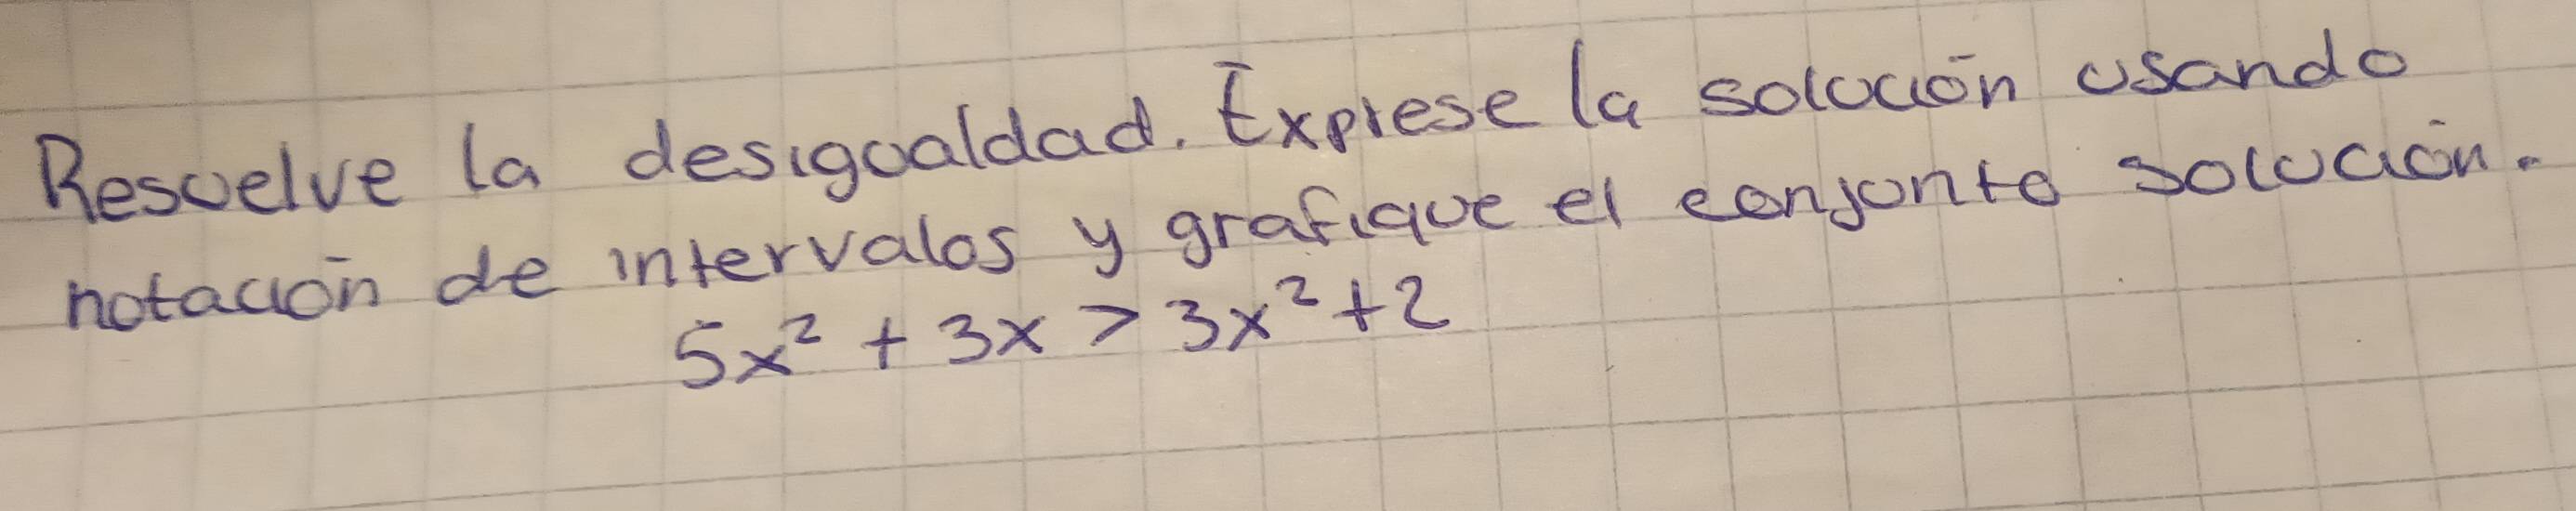 Resuelve la desigualdad. Exprese la solución usando
notación de intervalos y grafique el conjunto solución.
5x² + 3x > 3x² + 2